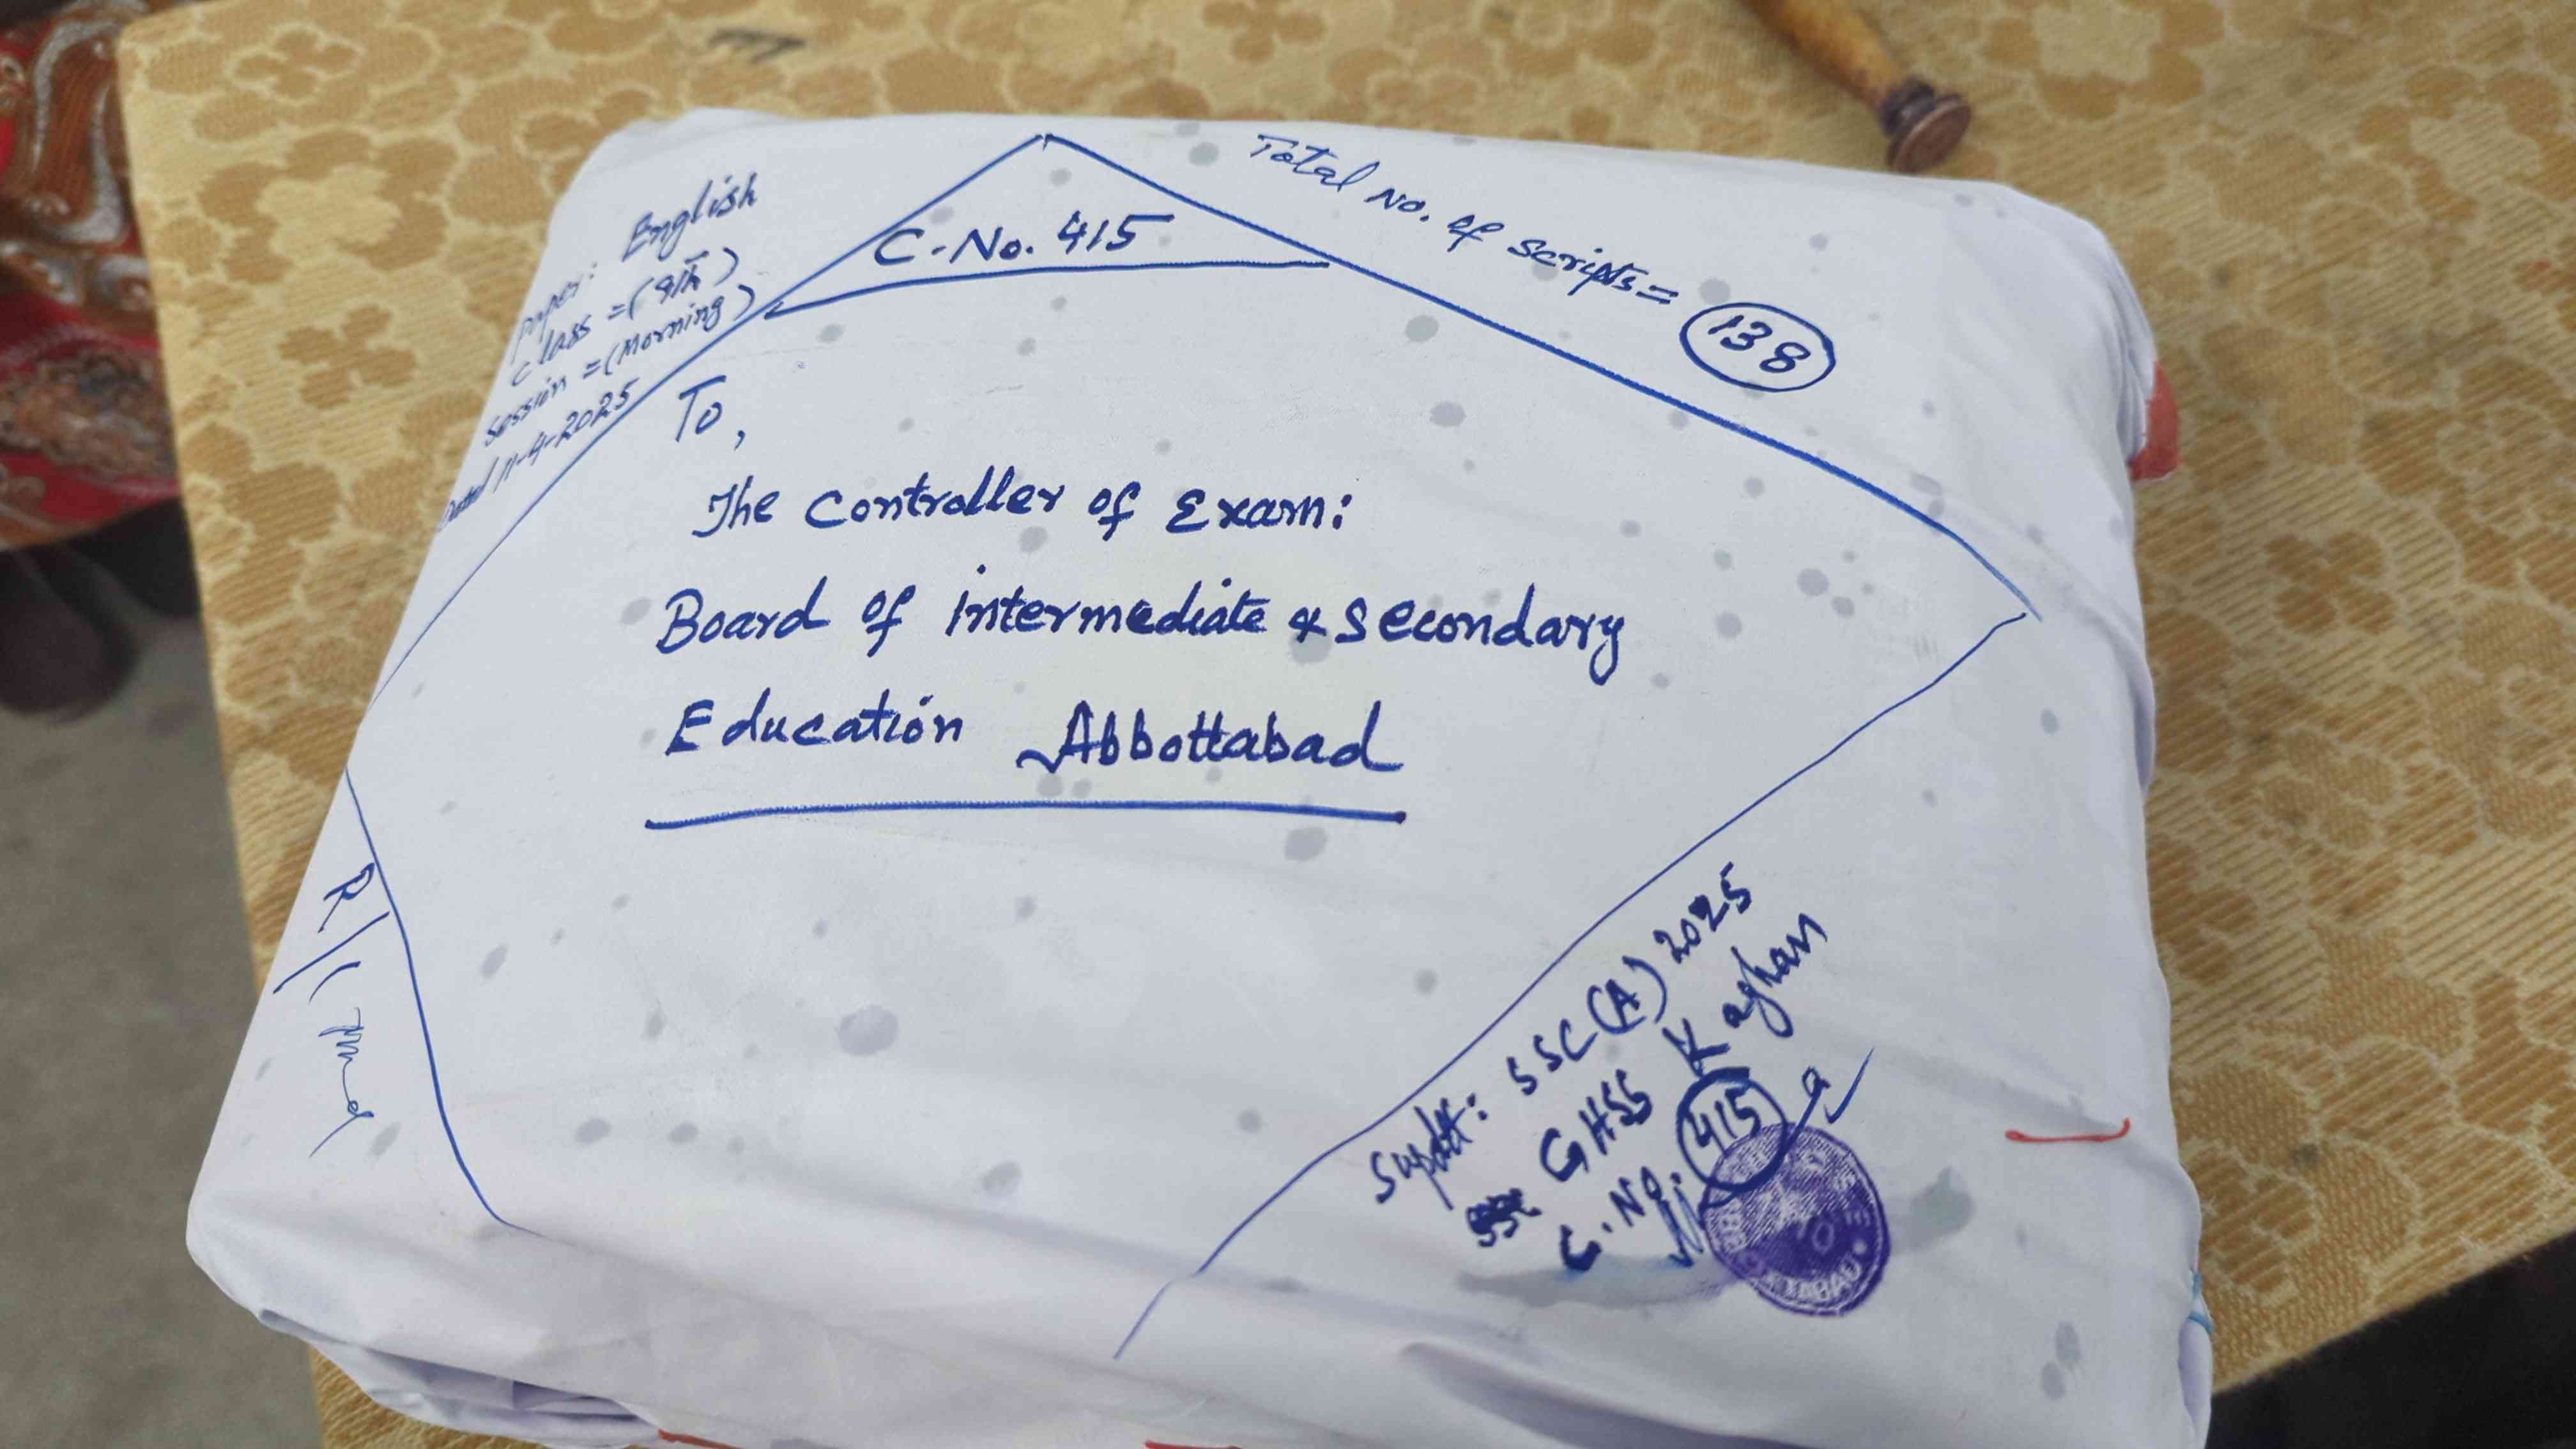 Paper: English
Class = (9th)
Session = (Morning)
Dated 11-4-2025
C. No. 415
Total No. of scripts = 138
To,
The Controller of Exam:
Board of intermediate & Secondary
Education Abbottabad
R/
Supdtt: SSC (A) 2025
GHSS Kaghan
C. No. 415